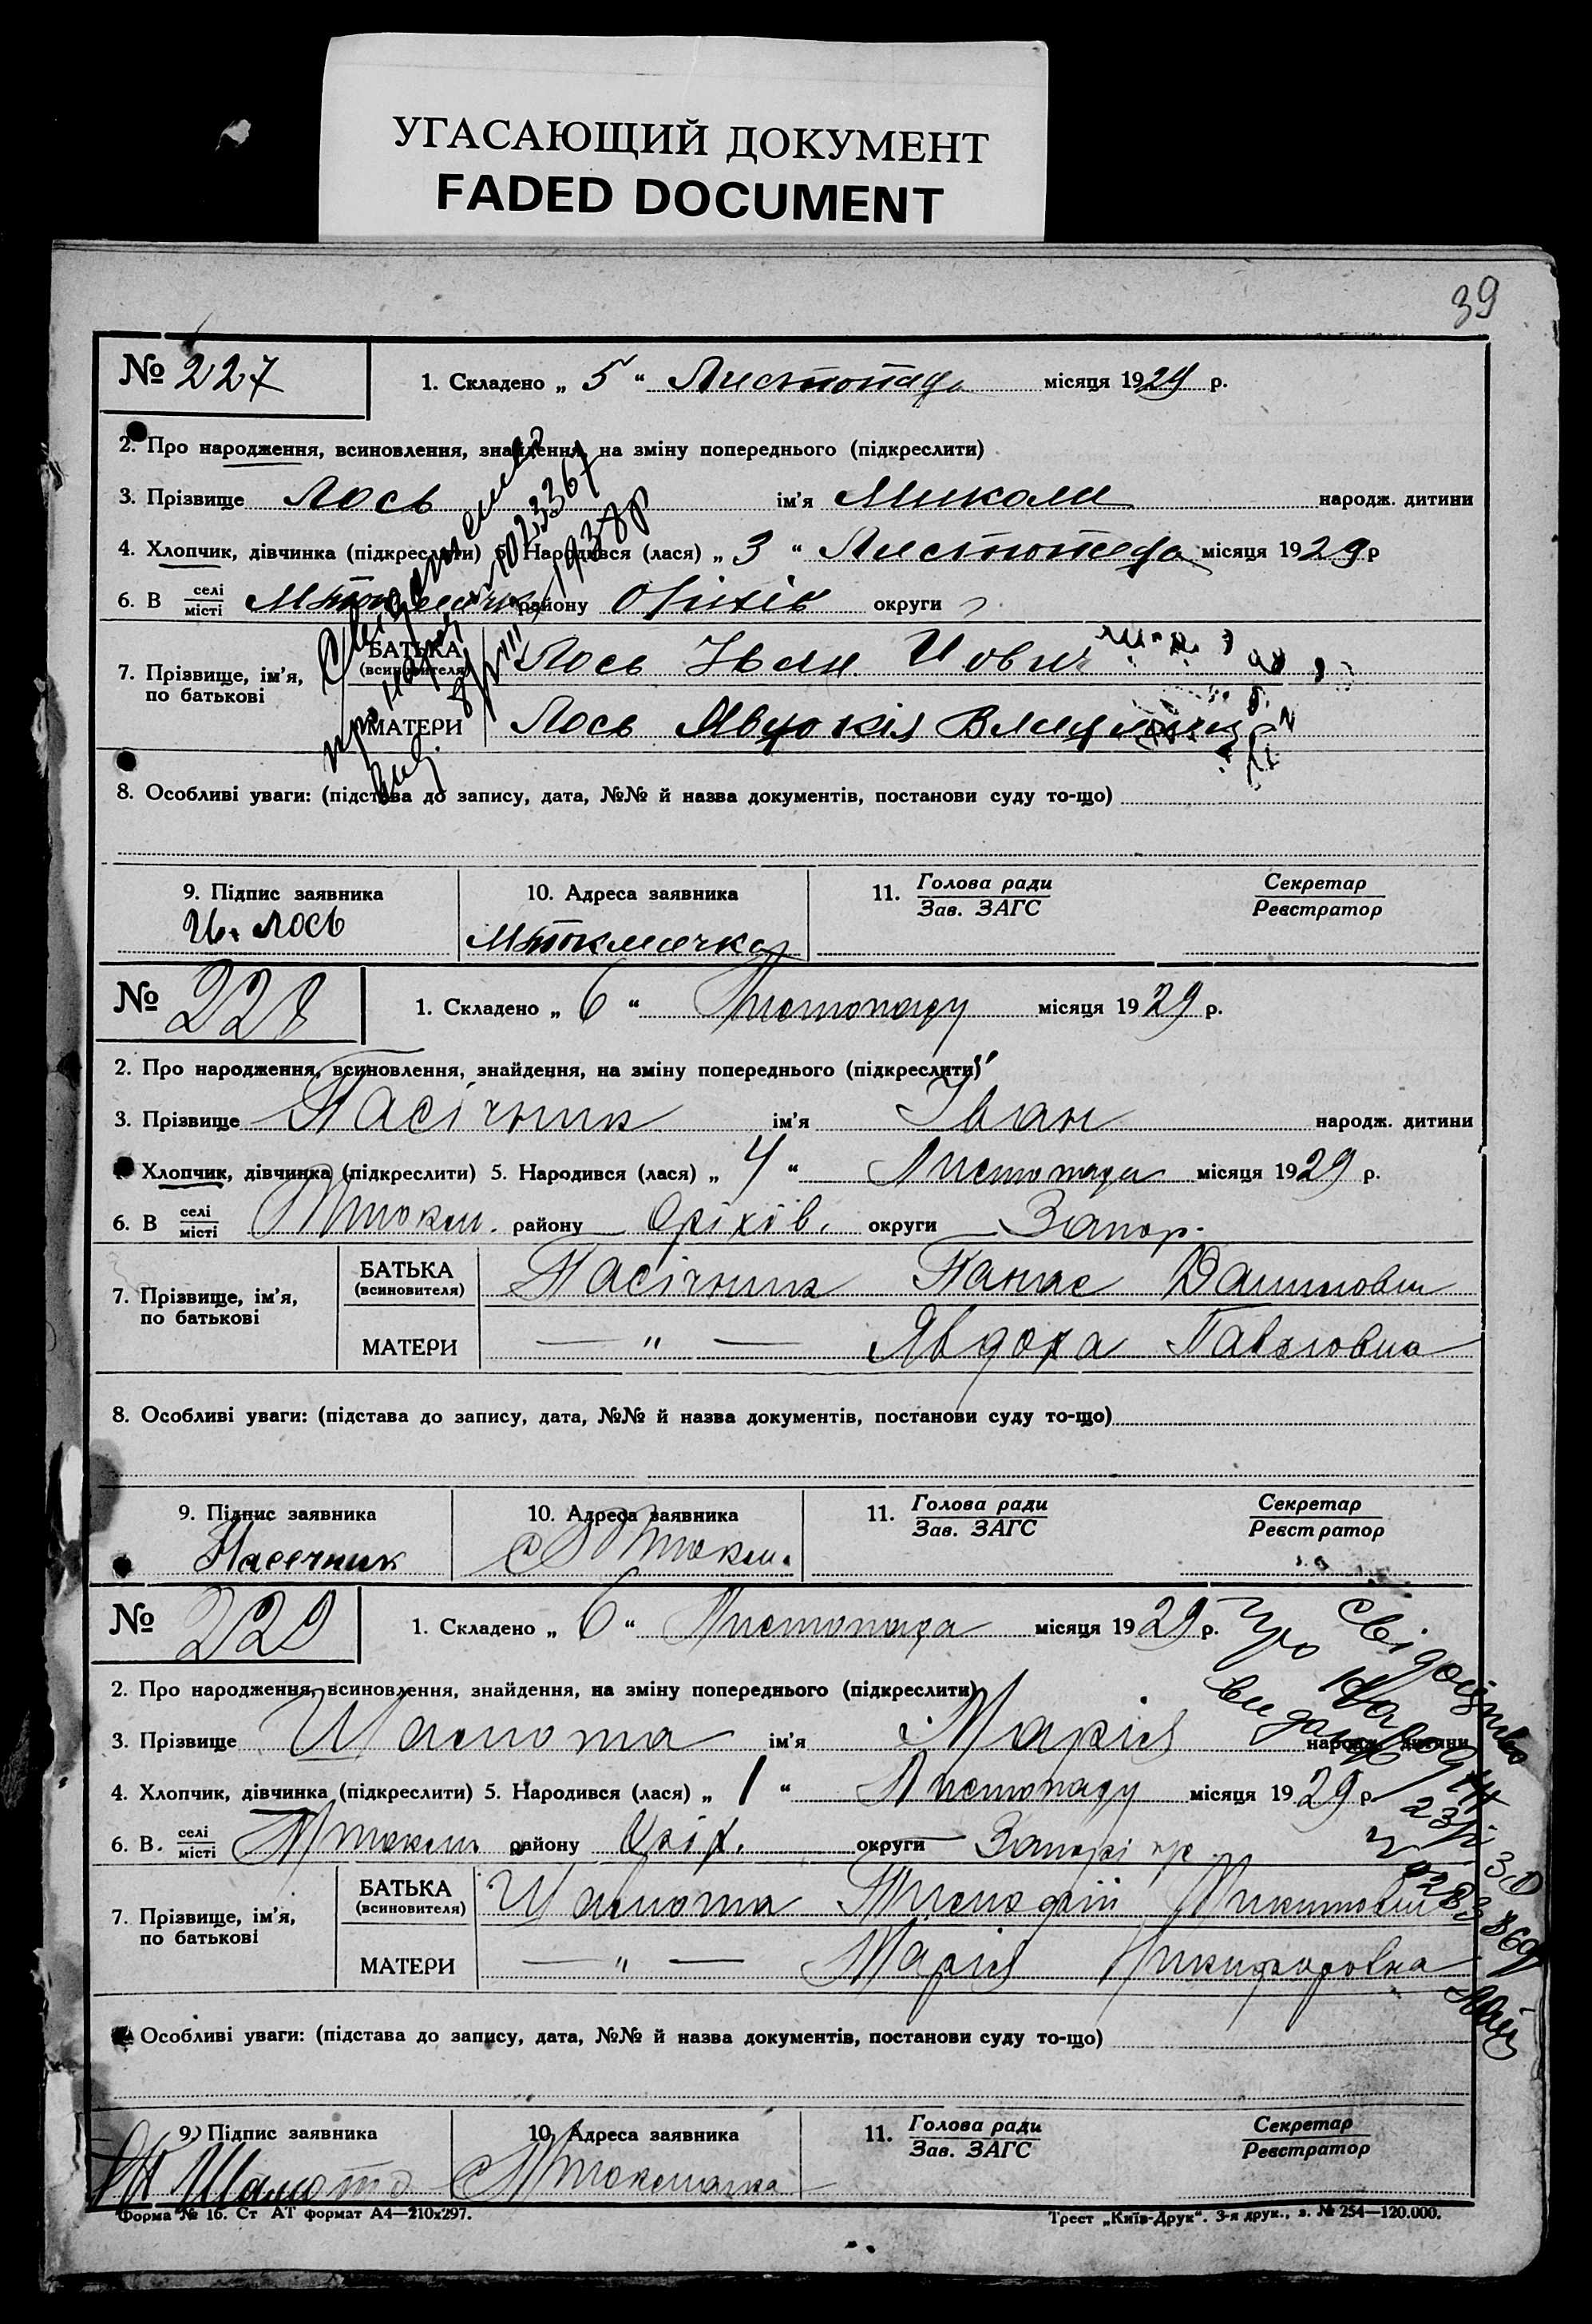 УГАСАЮЩИЙ ДОКУМЕНТ
FADED DOCUMENT
39
№ 227
1. Складено „ 5 “ Листопада місяця 1929 р.
2. Про народження, всиновлення, знайдення, на зміну попереднього (підкреслити)
3. Прізвище Лось ім'я Микола народж. дитини
4. Хлопчик, дівчинка (підкреслити) 5. Народився (лася) „ 3 “ Листопада місяця 1929 р
6. В селі/місті Мтокмачка району Оріхів округи
7. Прізвище, ім'я, по батькові
БАТЬКА (всиновителя) Лось Іван
МАТЕРИ Лось Явдокія
1938р
8. Особливі уваги: (підстава до запису, дата, №№ й назва документів, постанови суду то-що)
9. Підпис заявника
10. Адреса заявника
11. Голова ради / Зав. ЗАГС
Секретар / Реєстратор
И. Лось
Мтокмачка
№ 228
1. Складено „ 6 “ Листопаду місяця 1929 р.
2. Про народження, всиновлення, знайдення, на зміну попереднього (підкреслити)
3. Прізвище Пасічник ім'я Іван народж. дитини
Хлопчик, дівчинка (підкреслити) 5. Народився (лася) „ 4 “ Листопада місяця 1929 р.
6. В селі/місті Мтокм. району Оріхів. округи Запор.
7. Прізвище, ім'я, по батькові
БАТЬКА (всиновителя) Пасічник Панас Данилович
МАТЕРИ — „ — Явдоха Павловна
8. Особливі уваги: (підстава до запису, дата, №№ й назва документів, постанови суду то-що)
9. Підпис заявника
10. Адреса заявника
11. Голова ради / Зав. ЗАГС
Секретар / Реєстратор
Пасечник
с Мтокм.
№ 229
1. Складено „ 6 “ Листопада місяця 1929 р.
Свідоцтво
про народж
видано
2. Про народження, всиновлення, знайдення, на зміну попереднього (підкреслити)
3. Прізвище Шамота ім'я Марія народж. дитини
4. Хлопчик, дівчинка (підкреслити) 5. Народився (лася) „ 1 “ Листопаду місяця 1929 р.
6. В. селі/місті Мтокм. району Оріх. округи
7. Прізвище, ім'я, по батькові
БАТЬКА (всиновителя) Шамота Микитович
МАТЕРИ — „ — Марія Никифоровна
Особливі уваги: (підстава до запису, дата, №№ й назва документів, постанови суду то-що)
9) Підпис заявника
10. Адреса заявника
11. Голова ради / Зав. ЗАГС
Секретар / Реєстратор
Шамота
с Мтокмачка
Форма № 16. Ст АТ формат А4—210х297.
Трест „Київ-Друк“. 3-я друк., з. № 254—120.000.